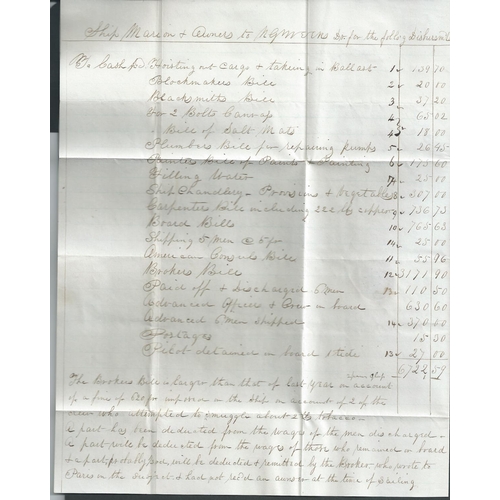 Ship Marion & Owners to Dr for the follog Disbursmts
To Cash pd Hoisting out Cargo & taking in Ballast 1 139.70
Blockmakers Bill 2 20.00
Blacksmiths Bill 3 37.20
for 2 Bolts Canvas 4 65.02
" Bill of Salt Meats 18.00
Plumbers Bill for repairing pumps 5 26.45
Painters Bill of Paints & Painting 6 175.60
Filling Water 7 25.00
Ship Chandlery - Provisions & Vegetables 8 307.00
Carpenters Bill including 222 lb copper 9 136.73
Board Bill 10 765.63
Shipping 5 Men @ 5 pr 14 25.00
American Consuls Bill 11 55.76
Brokers Bill 12 3171.90
Paid off & Discharged 6 Men 13 110.50
Advanced Officers & Crew on board 630.60
Advanced 6 Men Shipped 14 370.50
Postages 15.30
Pilot detained on board 1 tide 27.00
6122.59
The Brokers Bill is larger than that of last Year on account
of a fine of imposed on the Ship on account of 2 of the
crew who attempted to smuggle about tobacco
a part has been deducted from the wages of the men discharged -
a part will be deducted from the wages of those who remained on board
& a part probably will be deducted & remitted by the Broker who wrote to
Paris on the Subject & had not rec'd an answer at the time of Sailing